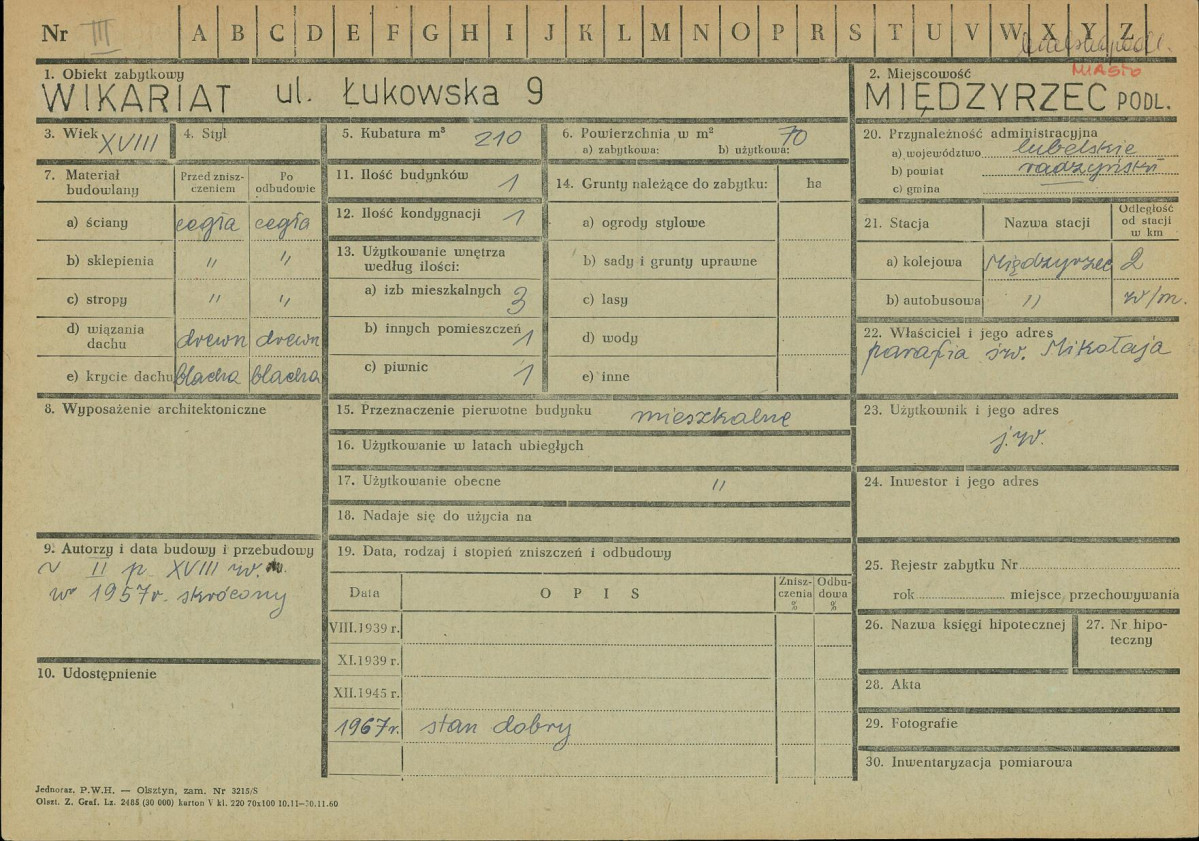 Nr III A B C D E F G H I J K L M N O P R S T U V W X Y Z
MIASTO
1. Obiekt zabytkowy
WIKARIAT ul. Łukowska 9
2. Miejscowość
MIĘDZYRZEC PODL.
3. Wiek XVIII
4. Styl
5. Kubatura m³ 210
6. Powierzchnia w m² 70
a) zabytkowa: b) użytkowa:
7. Materiał budowlany
Przed zniszczeniem
Po odbudowie
a) ściany cegła cegła
b) sklepienia " "
c) stropy " "
d) wiązania dachu drewn drewn
e) krycie dachu blacha blacha
8. Wyposażenie architektoniczne
9. Autorzy i data budowy i przebudowy
II p. XVIII w.
w 1957r. skrócony
10. Udostępnienie
11. Ilość budynków 1
12. Ilość kondygnacji 1
13. Użytkowanie wnętrza
według ilości:
a) izb mieszkalnych 3
b) innych pomieszczeń 1
c) piwnic 1
14. Grunty należące do zabytku: ha
a) ogrody stylowe
b) sady i grunty uprawne
c) lasy
d) wody
e) inne
15. Przeznaczenie pierwotne budynku mieszkalne
16. Użytkowanie w latach ubiegłych
17. Użytkowanie obecne "
18. Nadaje się do użycia na
19. Data, rodzaj i stopień zniszczeń i odbudowy
Data OPIS Zniszczenia % Odbudowa %
VIII.1939 r.
XI.1939 r.
XII.1945 r.
1967r. stan dobry
20. Przynależność administracyjna
a) województwo lubelskie
b) powiat radzyński
c) gmina
21. Stacja Nazwa stacji Odległość od stacji w km
a) kolejowa Międzyrzec 2
b) autobusowa " w/m.
22. Właściciel i jego adres
parafia św. Mikołaja
23. Użytkownik i jego adres
j.w.
24. Inwestor i jego adres
25. Rejestr zabytku Nr
rok miejsce przechowywania
26. Nazwa księgi hipotecznej
27. Nr hipoteczny
28. Akta
29. Fotografie
30. Inwentaryzacja pomiarowa
Jednoraz. P.W.H. — Olsztyn, zam. Nr 3215/S
Olszt. Z. Graf. Lz. 2485 (30 000) karton V kl. 220 70x100 10.11—30.11.60